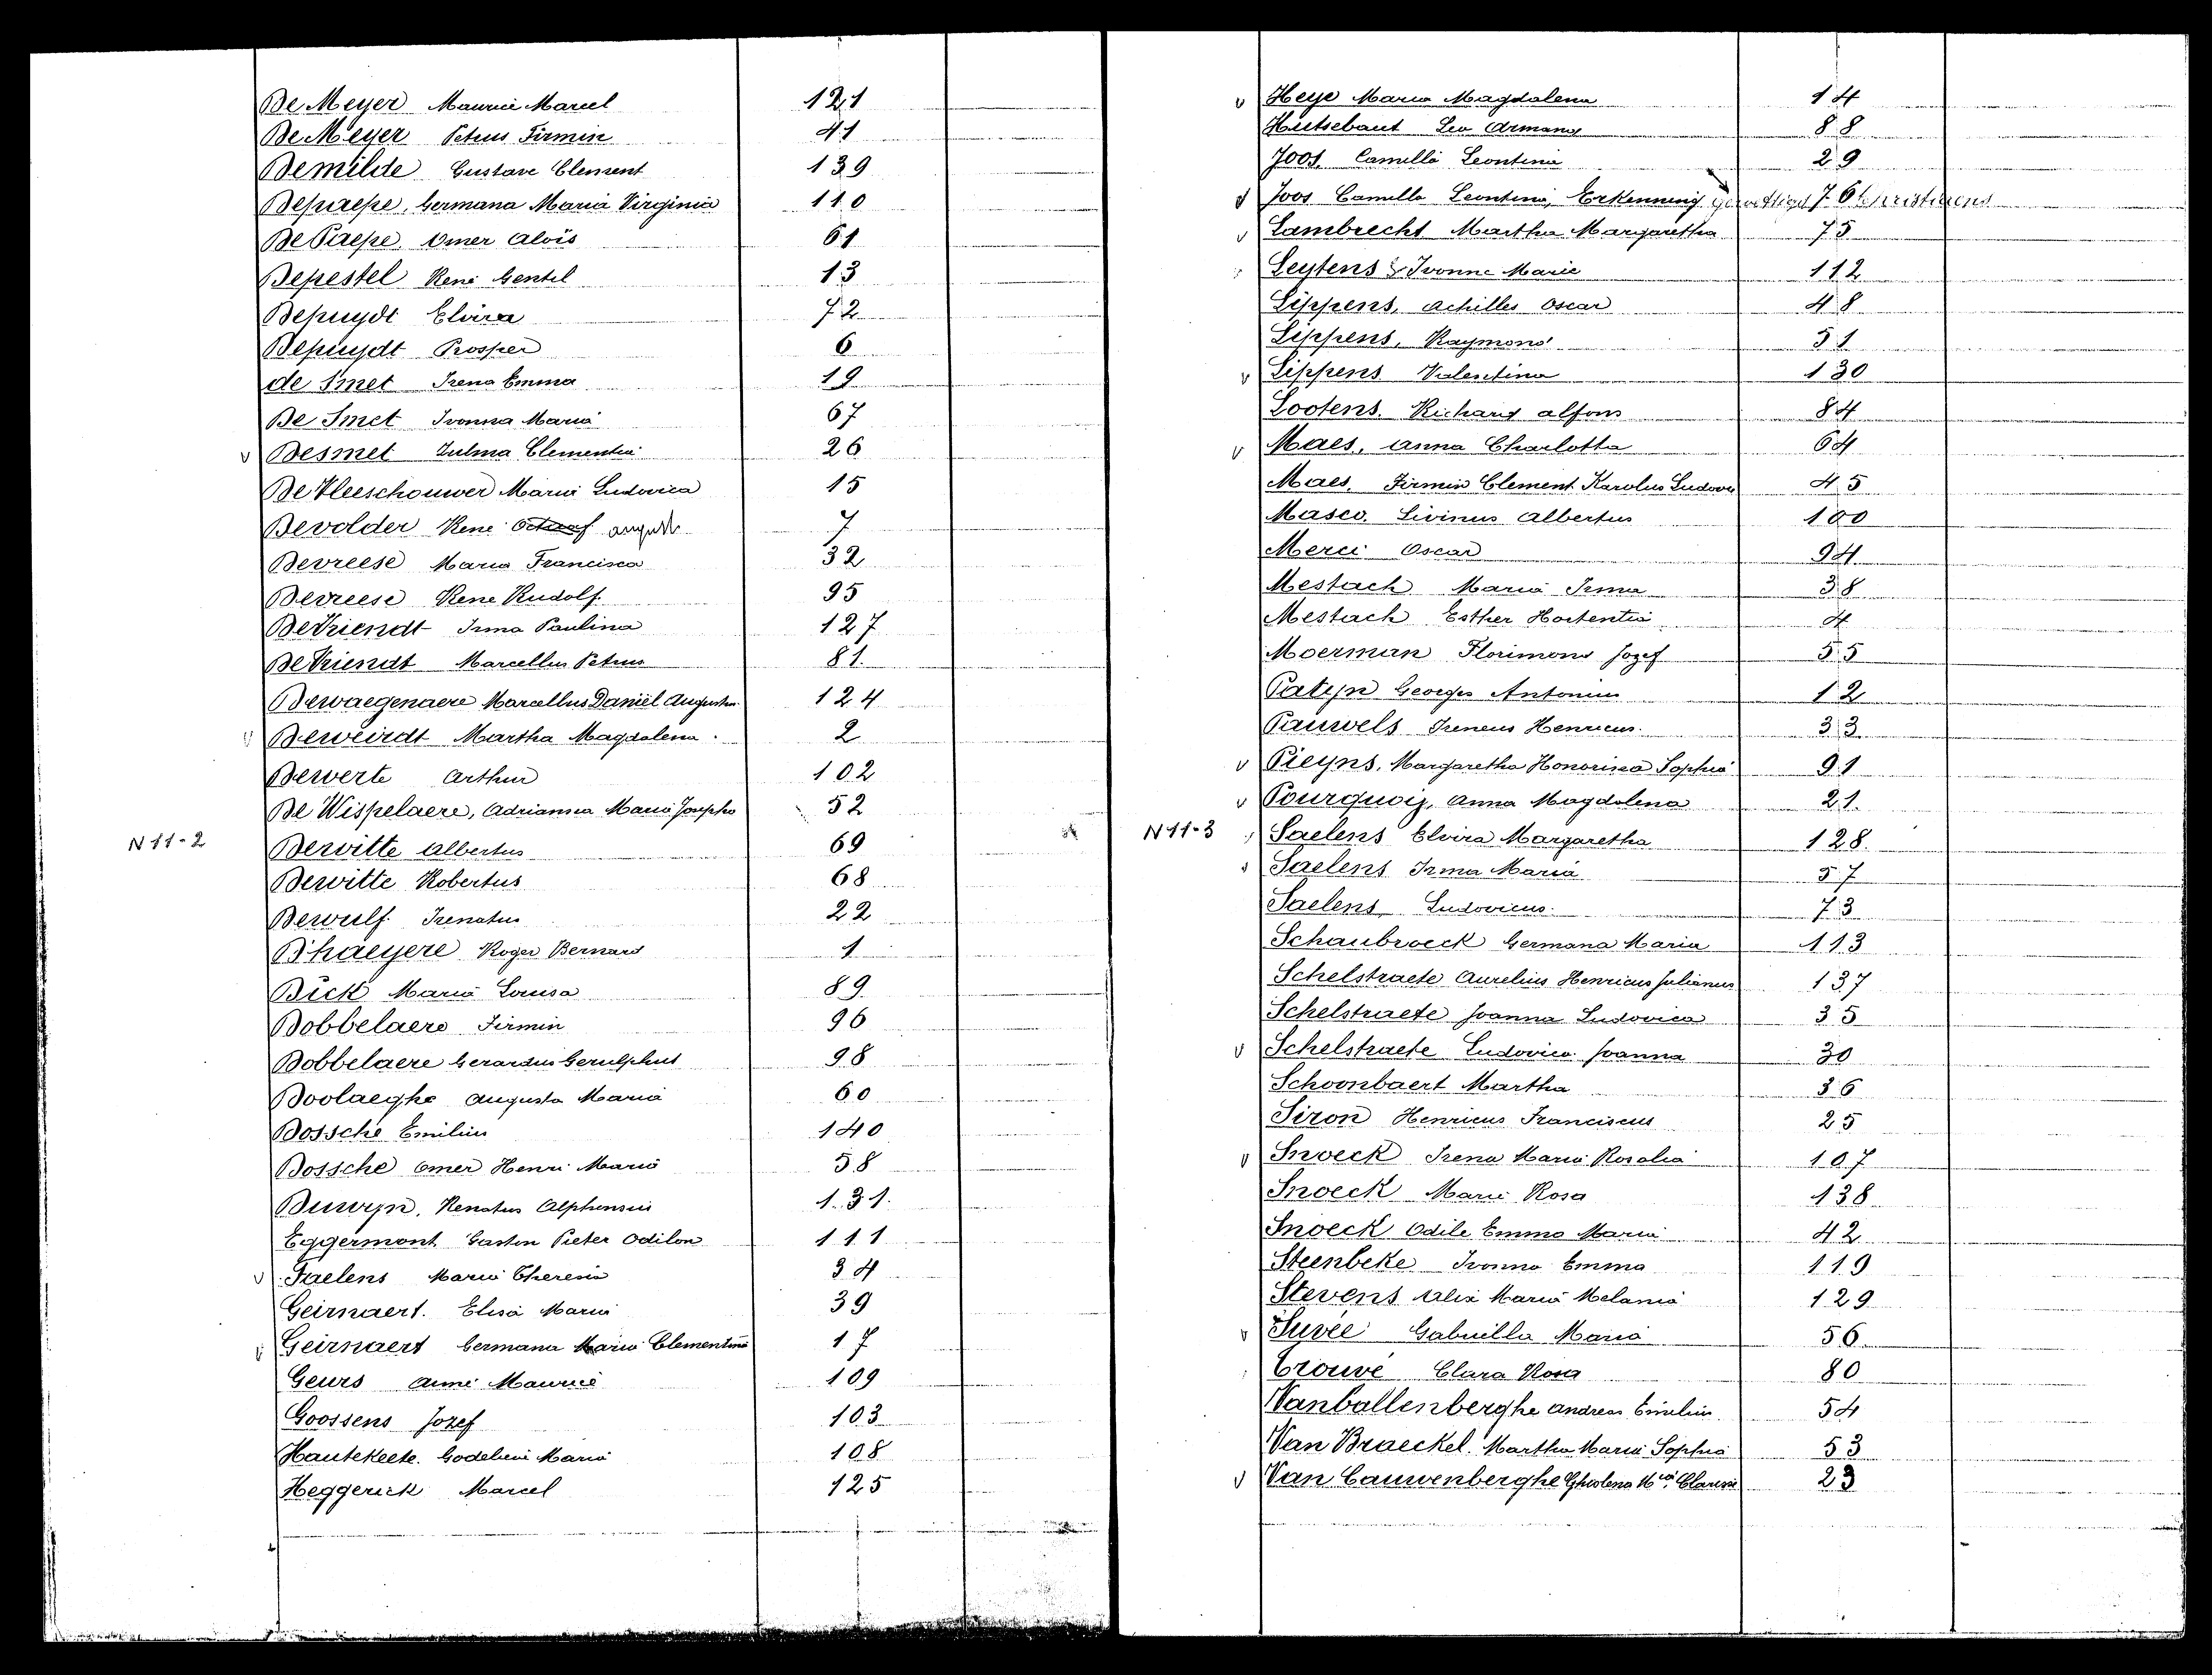 De Meyer Maurice Marcel 121
De Meyer Petrus Firmin 41
Demilde Gustave Clement 139
Depaepe, Germana Maria Virginia 110
De Paepe, Omer Aloïs 61
Depestel René Gentil 13
Depuydt Elvira 72
Depuydt Prosper 6
de Smet Irena Emma 19
De Smet Ivonna Maria 67
v Desmet Zulma Clementia 26
De Vleeschouwer Maria Ludovica 15
Devolder René august 7
Devreese Maria Francisca 32
Devreese René Rudolf. 95
De Vriendt Irma Paulina 127
De Vriendt Marcellus Petrus 81
Dewaegenaere Marcellus Daniël Augustus 124
v Deweirdt Martha Magdalena. 2
Dewerte Arthur 102
De Wispelaere, Adrianna Maria Josepha 52
N 11-2
Dewitte Albertus 69
Dewitte Robertus 68
Dewulf Irenatus 22
D'haeyere Roger Bernard 1
Dick Maria Louisa 89
Dobbelaere Firmin 96
Dobbelaere Gerardus Gerulphus 98
Doolaeghe Augusta Maria 60
Dossche Emilius 140
Dossche Omer Henri Maria 58
Duwyn, Renatus Alphonsus 131
Eggermont Gaston Pieter Odilon 111
v Faelens Maria Theresia 34
Geirnaert. Elisa Maria 39
v Geirnaert Germana Maria Clementina 17
Geurs Aimé Maurice 109
Goossens Jozef 103
Hautekeete. Godelieve Maria 108
Heggerick Marcel 125
v Heye Maria Magdalena 14
Hutsebaut Leo Armand 88
Joos, Camilla Leontina 29
v Joos Camilla Leontina, Erkenning 76
v Lambrecht Martha Margaretha 75
Leytens Ivonne Marie 112
Lippens, Achilles Oscar 48
Lippens, Raymond 51
v Lippens Valentina 130
Lootens. Richard Alfons 84
v Maes, Anna Charlotta 64
Maes, Firmin Clement Karolus Ludovic 45
Masco. Livinus Albertus 100
Merci Oscar 94
Mestach Maria Irma 38
Mestach Esther Hortentia 4
Moerman Florimond Jozef 55
Patyn Georges Antonius 12
Pauwels Ireneus Henricus. 33
v Pieyns, Margaretha Honorina Sophia 91
v Pourquoij, Anna Magdalena 21
N 11-3
Saelens Elvira Margaretha 128
Saelens Irma Maria 57
Saelens Ludovicus. 73
Schaubroeck Germana Maria 113
Schelstraete Aurelius Henricus Julianus 137
Schelstraete Joanna Ludovica 35
v Schelstraete Ludovica Joanna 30
Schoonbaert Martha 36
Siron Henricus Franciscus 25
v Snoeck Irena Maria Rosalia 107
Snoeck Maria Rosa 138
Snoeck Odile Emma Maria 42
Steenbeke Ivonna Emma 119
Stevens Alix Maria Melania 129
v Suvée Gabriella Maria 56
Trouvé Clara Rosa 80
Vanballenberghe Andreas Emilius 54
Van Braeckel. Martha Maria Sophia 53
v Van Cauwenberghe Ghislena Mia Clarisse 23